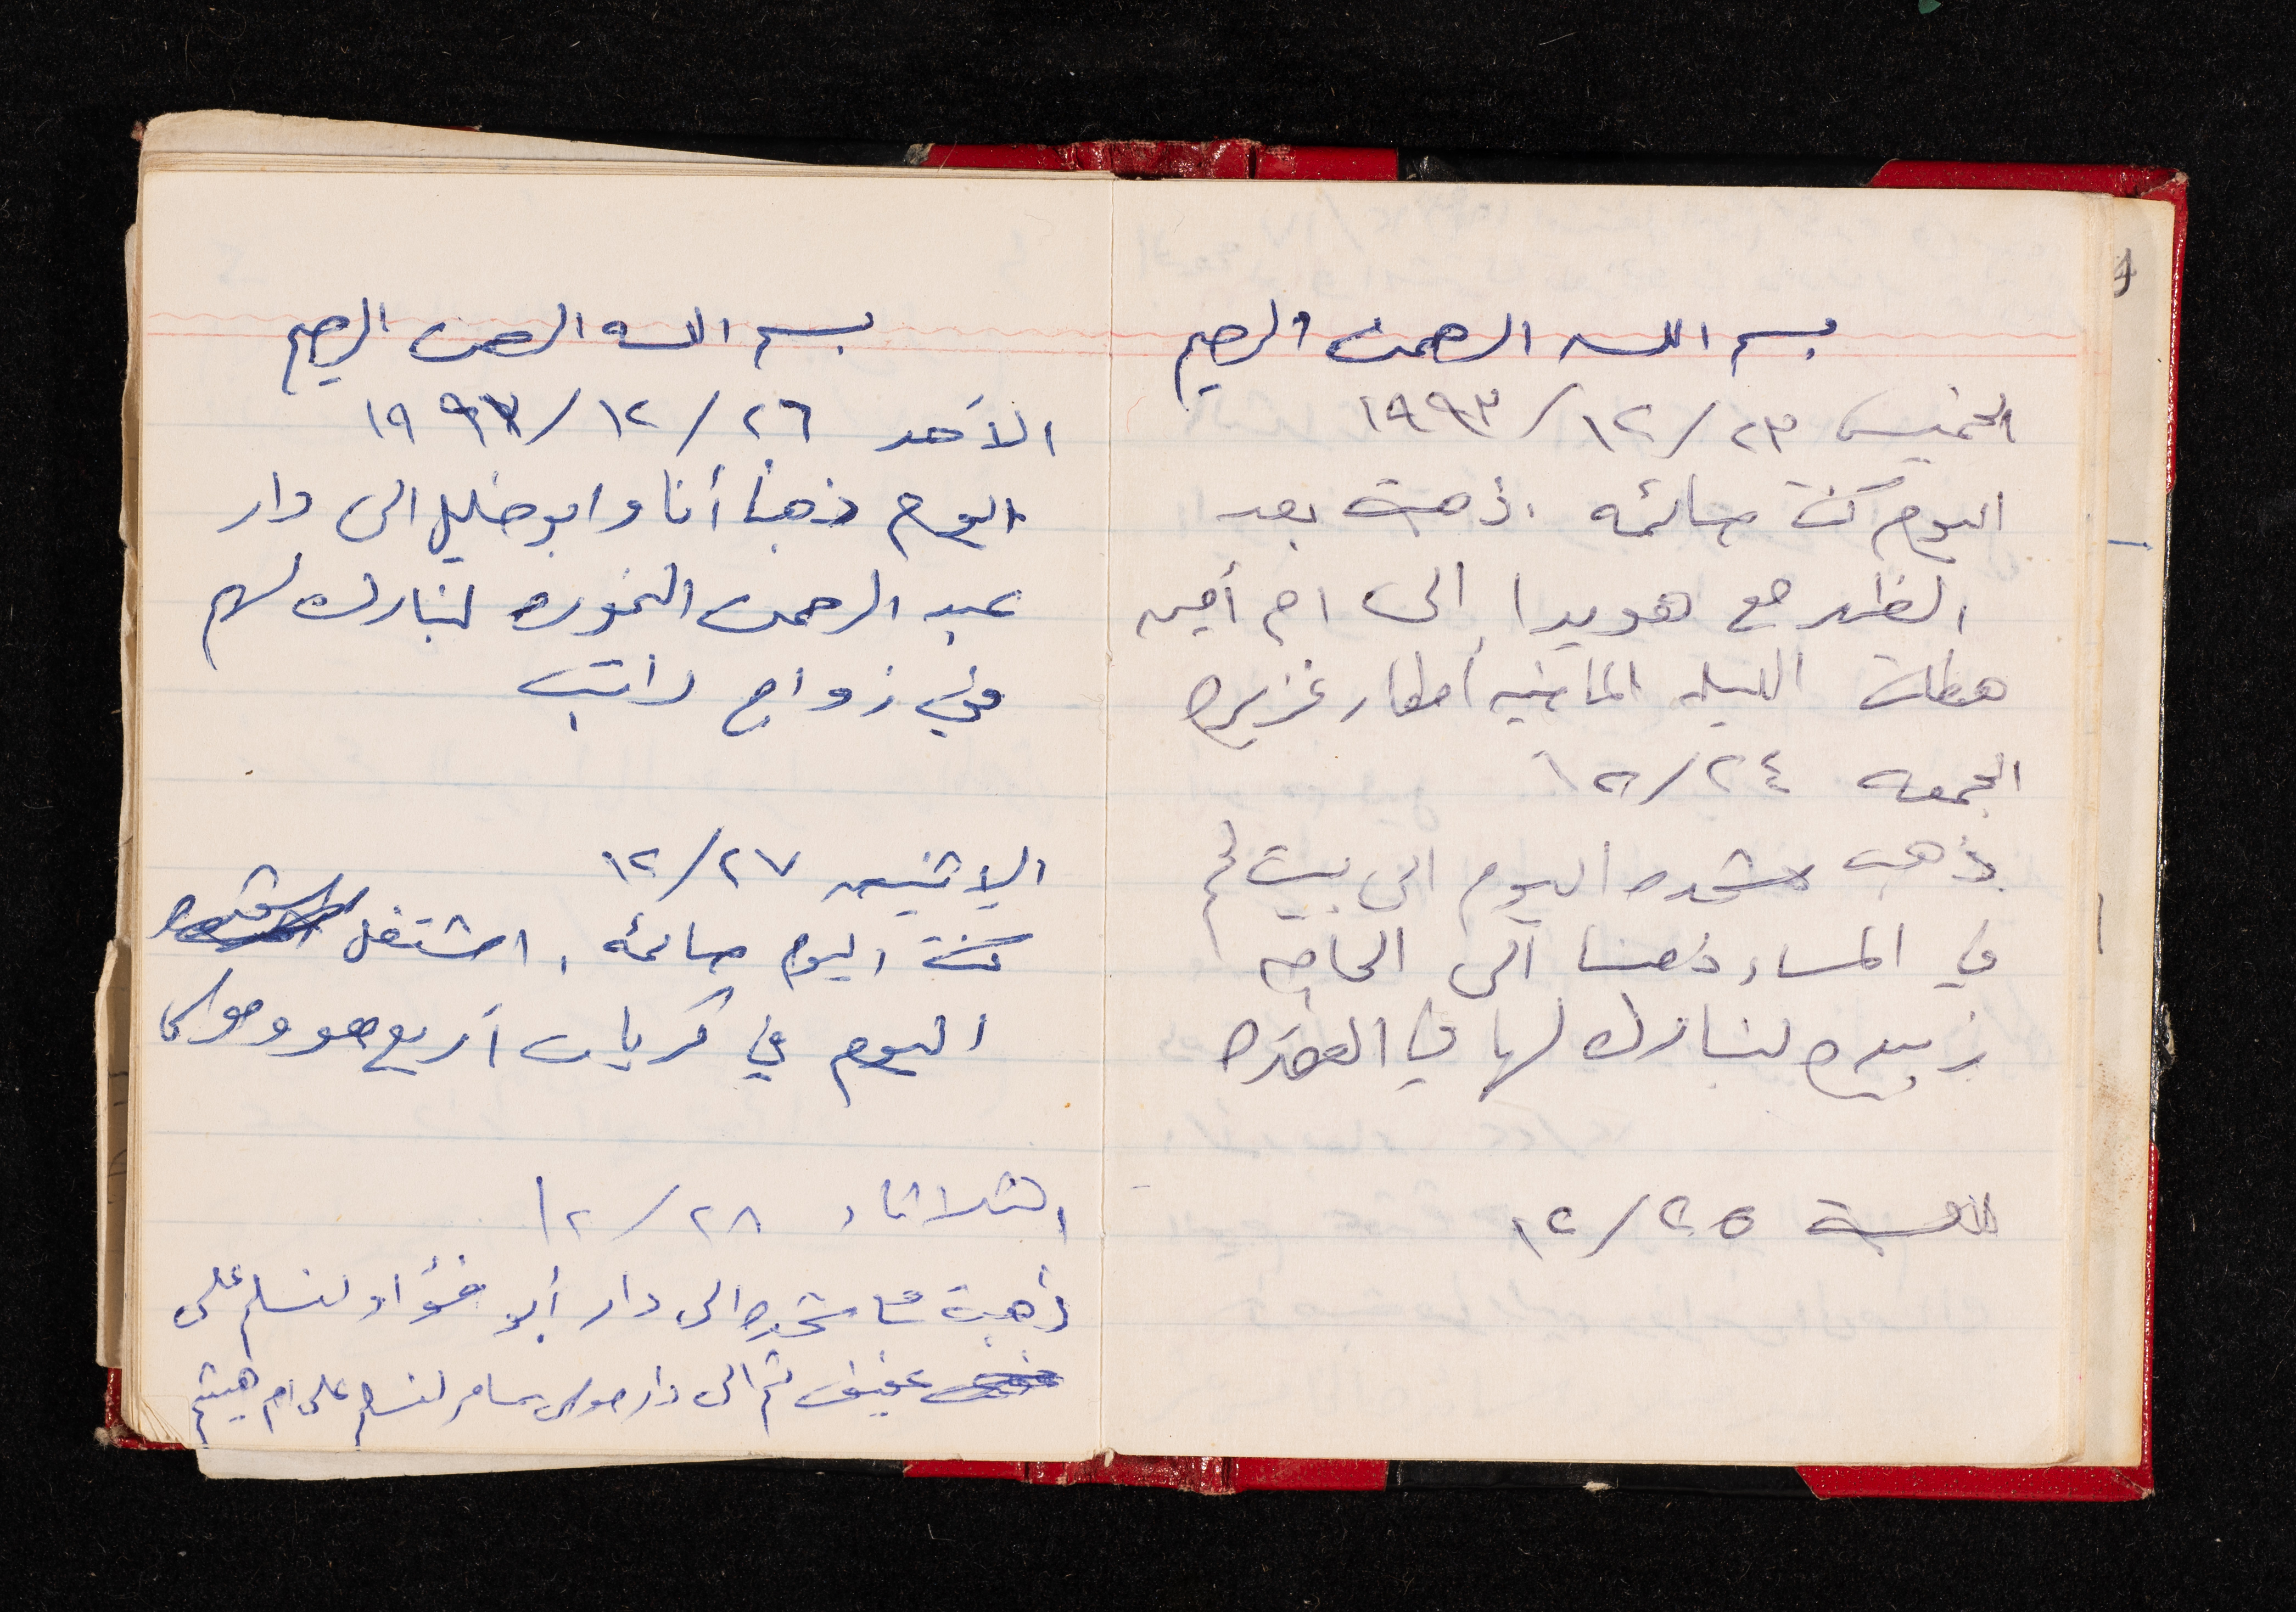 بسم الله الرحمن الرحيم
الخميس ٢٣/١٢/١٩٩٣
اليوم كنت صائمه . ذهبت بعد
الظهر مع هويدا إلى ام أمين
هطلت الليله الماضيه أمطار غزيره
الجمعه ٢٤/١٢
ذهب شحده اليوم الى بيت لحم
في المساء ذهبنا الى الحاجه
زبيده لنبارك لها في العمره
السبت ٢٥/١٢
بسم الله الرحمن الرحيم
الأحد ٢٦/١٢/١٩٩٣
اليوم ذهبنا أنا وابو خليل الى دار
عبد الرحمن النموره لنبارك لهم
في زواج راتب
الإثنين ٢٧/١٢
كنت اليوم صائمه . اشتغل شحده
اليوم في كريات أربع هو وموسى
الثلاثاء ٢٨/١٢
ذهبت مع شحده الى دار أبو فؤاد لنسلم على
عفيف ثم الى دار موسى سامر لنسلم على ام هيثم